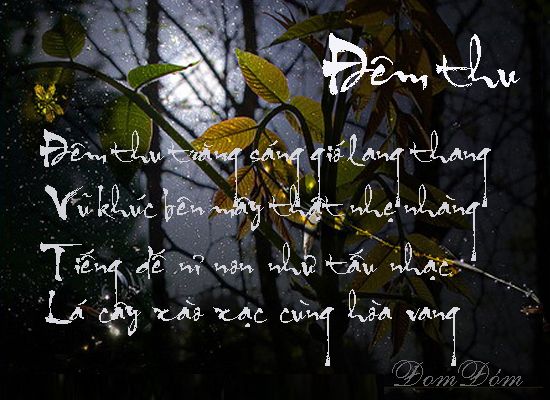 Đêm thu
Đêm thu trăng sáng gió lang thang
Vũ khúc bên mây thật nhẹ nhàng
Tiếng dế nỉ non như tấu nhạc
Lá cây xào xạc cùng hòa vang
ĐomĐóm